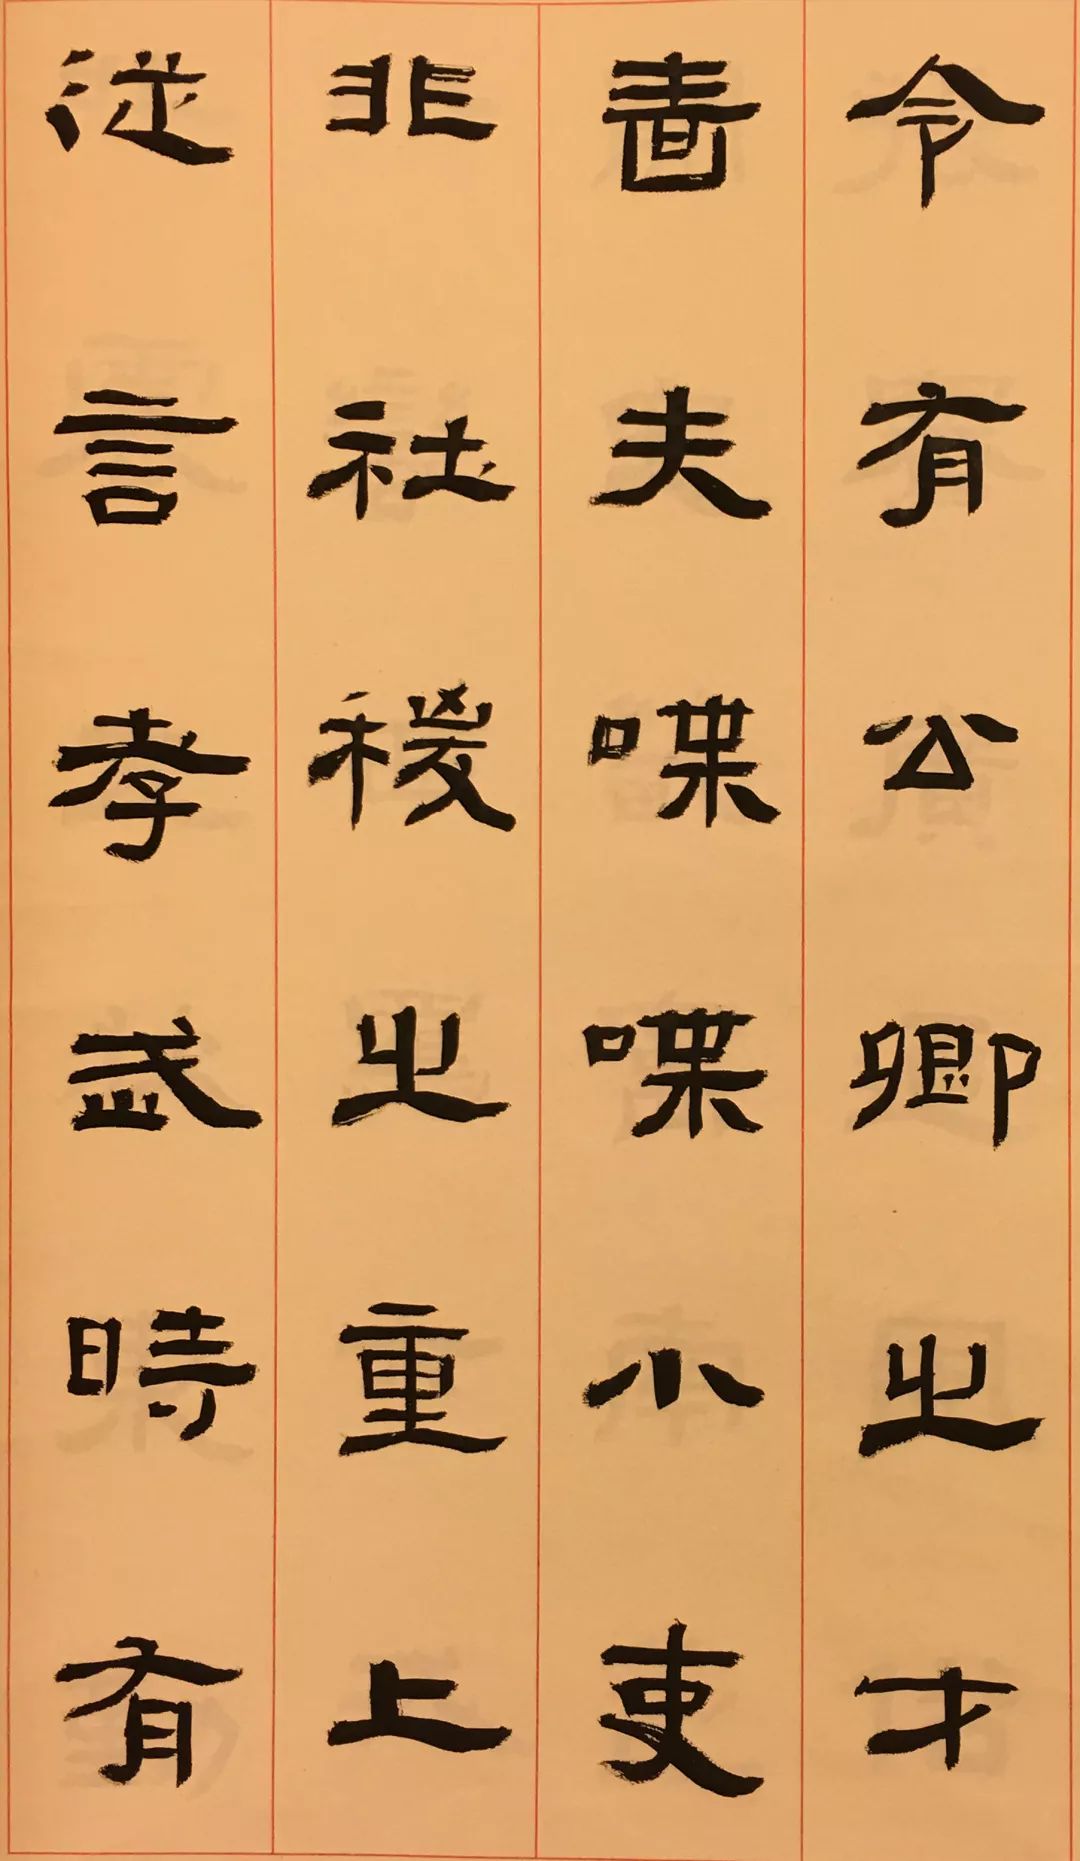 令有公卿之才
嗇夫喋喋小吏
非社稷之重上
從言孝武時有